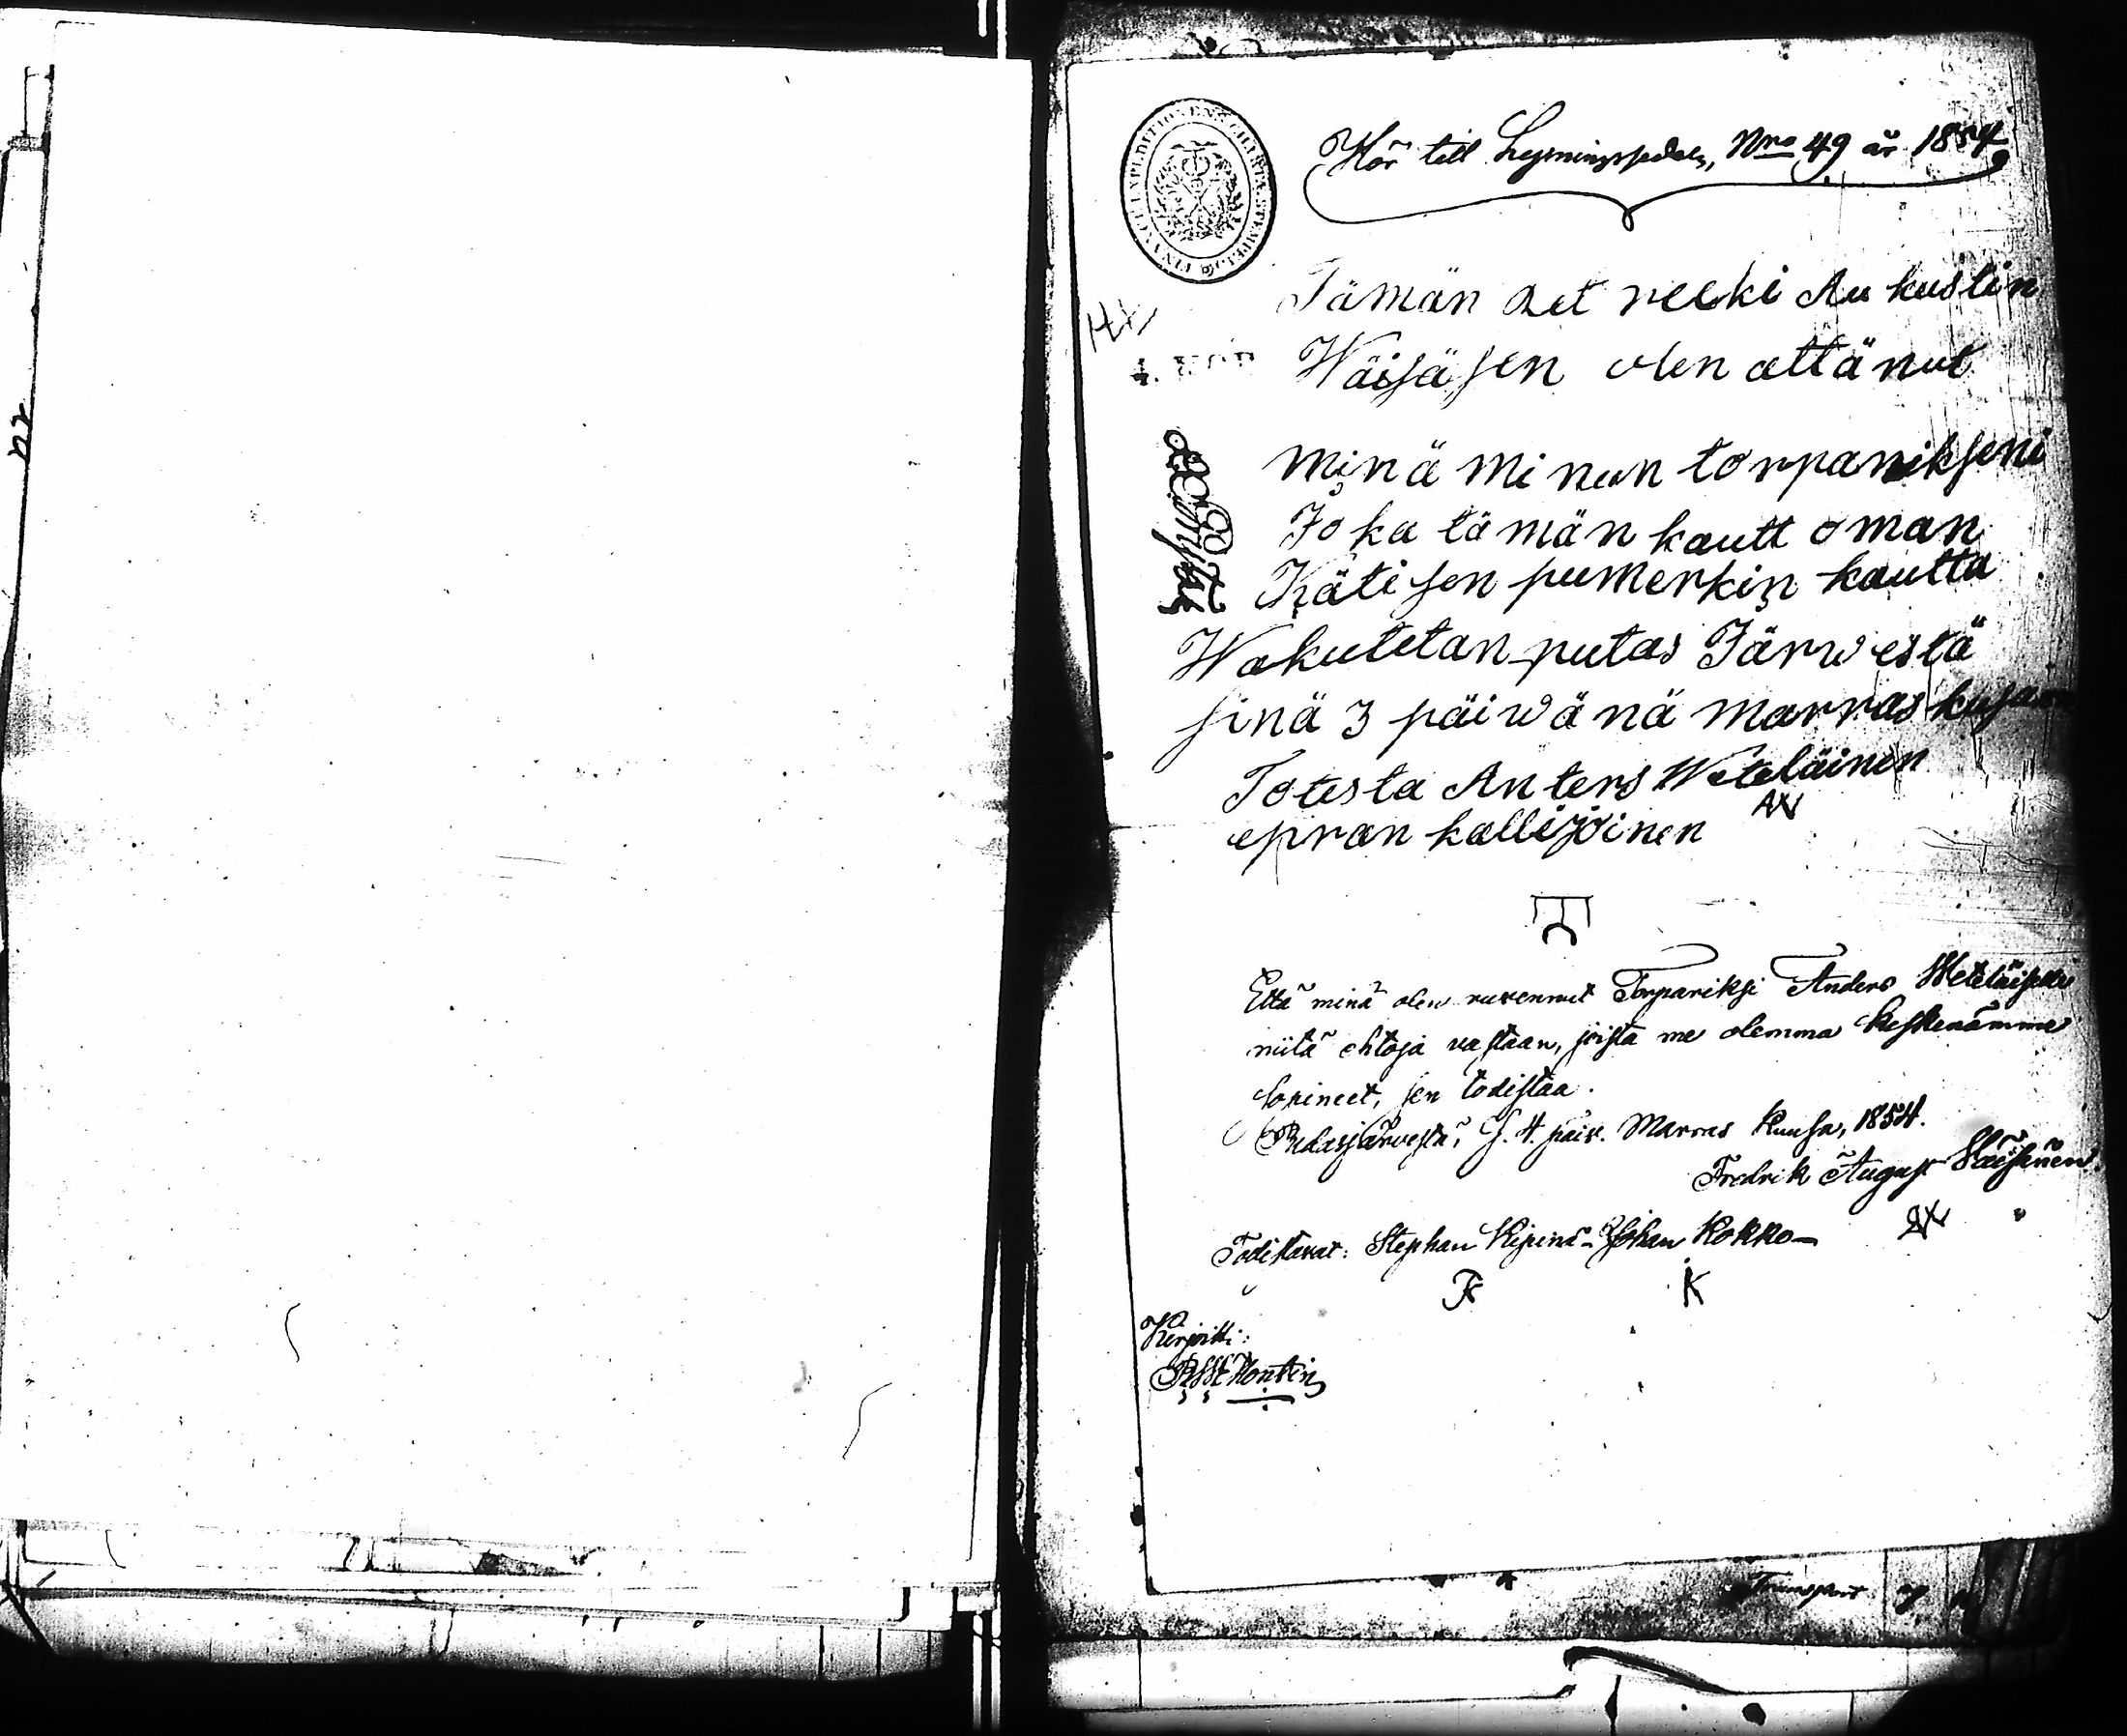 Hör till Lysningssedeln, Nro 49 år 1854
Tämän Ret reeki Au kustin
Wäisäsen olen ottänut
minä mi nun torpanikseni
Jo ka tä män kautt oman
Käti sen pumerkin kautta
Wakutetan putas Järwestä
sinä 3 päiwä nä marras kusa
Totesta Anters Weteläinen
AW
epran kallijoinen
Että minä olen ruvennut Torpariksi Anders Weteläiselle
niitä ehtoja vastaan, joista me olemma keskenämme
sopineet, sen todistaa.
Pudasjärvestä, S. 4. päiv. Marras kuusa, 1854.
Fredrik August Wäisänen
Todistavat: Stephan Kipinä - Johan Kokko
K
Kirjoitti:
Montin
Transport